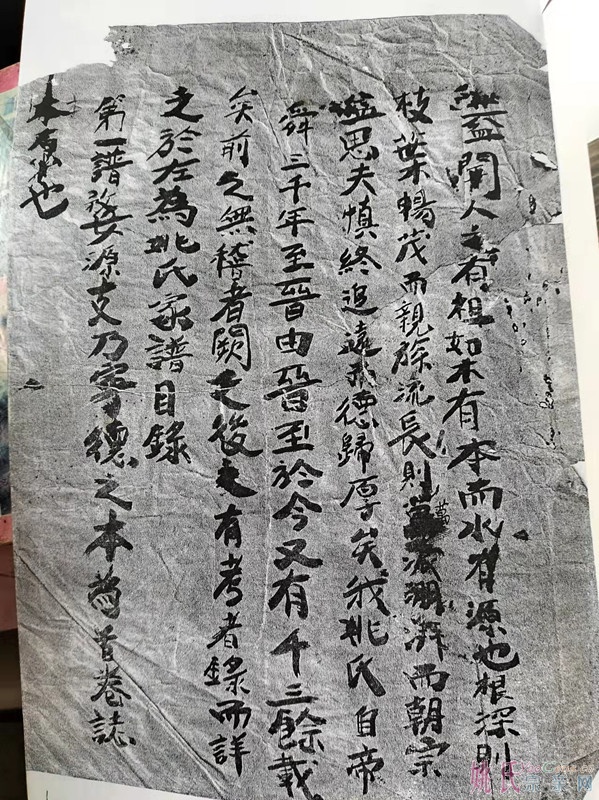 盖聞人之有祖如木有本而水有源也根深則
枝葉暢茂而親除流長則萬派澎湃而朝宗
思夫慎終追遠民德歸厚矣我姚氏自帝
舜三千年至晉由晉至於今又有千三餘載
矣前之無稽者闕之後之有考者錄而詳
之於左為姚氏家譜目錄
第一譜婺源支乃寧德之本為首卷誌
本有也
姚氏